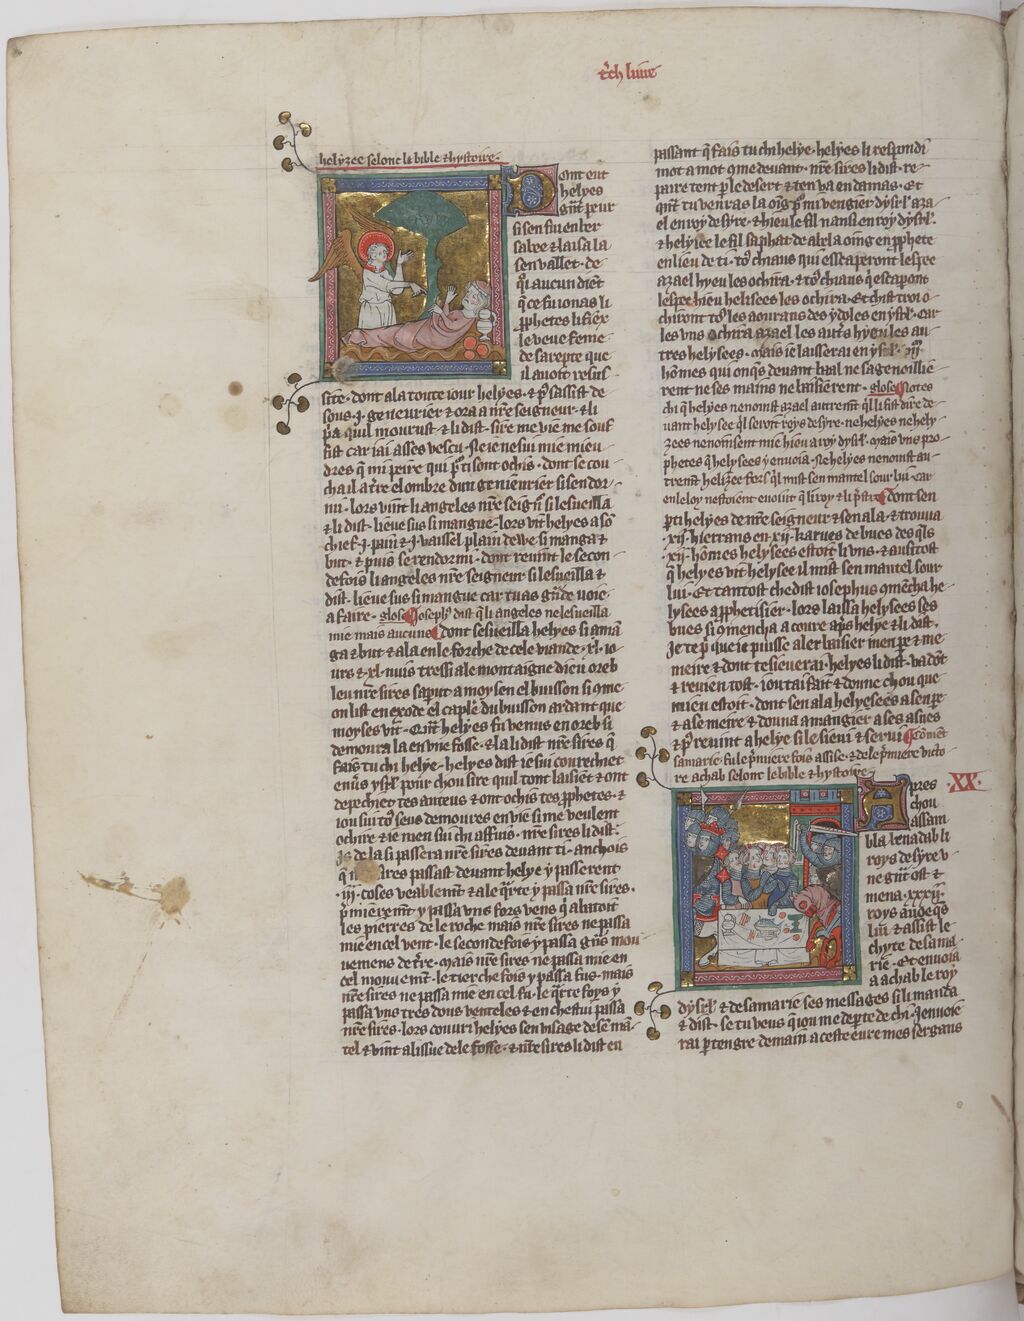 t͛ch liure
helyzee selonc le bible ⁊ hystoire·
Dont eut
helyes
gñt peur
si sen fui en ber
sabee ⁊ laisa la
sen vallet· de
q̇i aucun diēt
q̃ ce fu ionas li
ꝓphetes li fiex
le veue feme
de sarepte que
il auoit resus-
cite· dont ala toute iour helyes· ⁊ pͥs sassist de
sous ·j· geneurier ⁊ ora a nr̃e seigneur· ⁊ li
pͥa quil mourust· ⁊ li dist· sire me vie me souf
fist car iai asses vescu· Ne ie ne sui mie mieu-
dres q̃ mi peire qui pͥti sont ochis· dont se cou-
cha il a tr̃e el ombre dun geneurier si sendor-
mi· lors vint li angeles nr̃e seignͬ si lesueilla
⁊ li dist· lieue sus si mangue· lors vit helyes a sō
chief ·j· pain ⁊ ·j· vaissel plain dewe si manga ⁊
but· ⁊ puis se rendormi· dont reuint le secon-
de fois li angeles nr̃e seigneur si lesueilla ⁊
dist· lieue sus si mangue car tu as gñde voie
a faire· glose Joseph⁹ dist q̃ li angeles ne lesueilla
mie mais aucuns dont sesueilla helyes si man
ga ⁊ but ⁊ ala en le forche de cele viande ·xl· io-
urs ⁊ ·xl· nuis tressi a le montaigne dieu oreb
leu nr̃e sires saparut a moysen el buisson si 9me
on list en exode el caple du buisson ardant que
moyses vit· Qñt helyes fu venus en oreb si
demoura la en vne fosse· ⁊ la li dist nr̃e sires q̃
fais tu chi helye· helyes dist ie sui courechiet
enũs ysrl̃ pour chou sire quil tont laisiet ⁊ ont
depechiet tes auteus ⁊ ont ochis tes ꝓphetes· ⁊
iou sui to⁹ seus demoures en vie si me veulent
ochire ⁊ ie men sui chi affuis· nr̃e sires li dist·
Js de la si passera nr̃e sires deuant ti· anchois
q̃ nr̃e sires passast deuant helye y passerent
·iij· coses veablemt̃ ⁊ a le q̃rte y passa nr̃e sires·
pͥmieremt̃ y passa vns fors vens q̇i abatoit
les pierres de le roche mais nr̃e sires ne passa
mie en cel vent· le seconde fois y passa gñs mou
uemens de tr̃e· mais nr̃e sires ne passa mie en
cel mouuemt̃· le tierche fois y passa fus· mais
nr̃e sires ne passa mie en cel fu· le q̃rte foys y
passa vns tres dous venteles ⁊ en chestui passa
nr̃e sires· lors couuri helyes sen visage de sē mā-
tel ⁊ vint a lissue de le fosse· ⁊ nr̃e sires li dist en
passant q̃ fais tu chi helye· helyes li respondi
mot a mot 9me deuant· nr̃e sires li dist· re-
paire tent p̱ le desert ⁊ ten va en damas· Et
qñt tu venras la
el en roy de syre· ⁊ hieu le fil nansi en roy dysrl̃·
⁊ helysee le fil saphat de abela en ꝓphete
en lieu de ti· to⁹ chiaus qui escaperont lespee
azael hyeu les ochira· ⁊ to⁹ chiaus q̇i escapont
lespee hieu helisees les ochira· Et chist troi o-
chiront to⁹ les aourans des ydoles en ysrl̃· Car
les vns ochira azael les autr̃s hyeu les au-
tres helysees· Mais ie laisserai en ysrl̃ ·vij·
hōmes qui onq̃s deuant baal ne sagenoillie-
rent ne ses mains ne baisierent· glose Notes
chi q̃ helyes nenoinst azael autremt̃ q̃l li fist dire de-
uant helysee q̃l seroit roys de syre· ne helyes ne hely-
zees nenoinsent mie hieu a roy dysrl̃· mais vns pro-
phetes q̃ helysees y enuoia· Ne helyes nenoinst au-
tremt̃ helizee fors q̃l mist sen mantel sour lui· car
en le loy nestoient enoint q̃ li roy ⁊ li pr̃stre Dont sen
pͥti helyes de nr̃e seigneur ⁊ sen ala· ⁊ trouua
·xij· hierrans en ·xij· karues de bues des q̃ls
·xij· hōmes helysees estoit li vns· ⁊ ausitost
q̃ helyes vit helysee il mist sen mantel sour
lui· Et tantost che dist iosephus 9mēcha he-
lysees a ꝓphetisier· lors laissa helysees ses
bues si 9mencha a coure ap̃s helye ⁊ li dist·
Je te pͥ que ie puisse aler baisier men pe ⁊ me
meire ⁊ dont te sieuerai· helyes li dist· va dōt
⁊ reuien tost· iou tai fait ⁊ donne chou que
mien estoit· dont sen ala helysees a sen pe
⁊ a se meire ⁊ donna a mangier a ses asnes
⁊ pͥs reuint a helye si le sieui ⁊ serui 9ment
samarie fu le pͥmiere fois assise· ⁊ de le pͥmiere victo-
re achab selonc le bible ⁊ hystoire·
·XX·
Apres
chou
assam
bla benadab li
roys de syre v
ne gñt ost ⁊
mena ·xxxij·
roys auoecq̃s
lui ⁊ assist le
chyte de sama
rie· Et enuoia
a achab le roy
dysrl̃ ⁊ de samarie ses messages si li manda
⁊ dist· se tu veus q̃ iou me depte de chi· Jenuoie
rai pͥtengre demain a ceste eure mes sergans